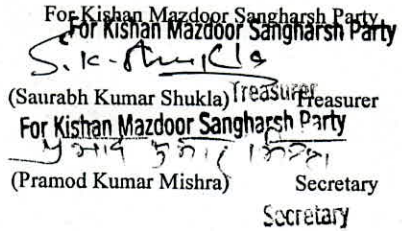 For Kishan Mazdoor Sangharsh Party
For Kishan Mazdoor Sangharsh Party
S.K. Shukla
(Saurabh Kumar Shukla) Treasurer Treasurer
For Kishan Mazdoor Sangharsh Party
कुमार मिश्रा
(Pramod Kumar Mishra) Secretary
Secretary